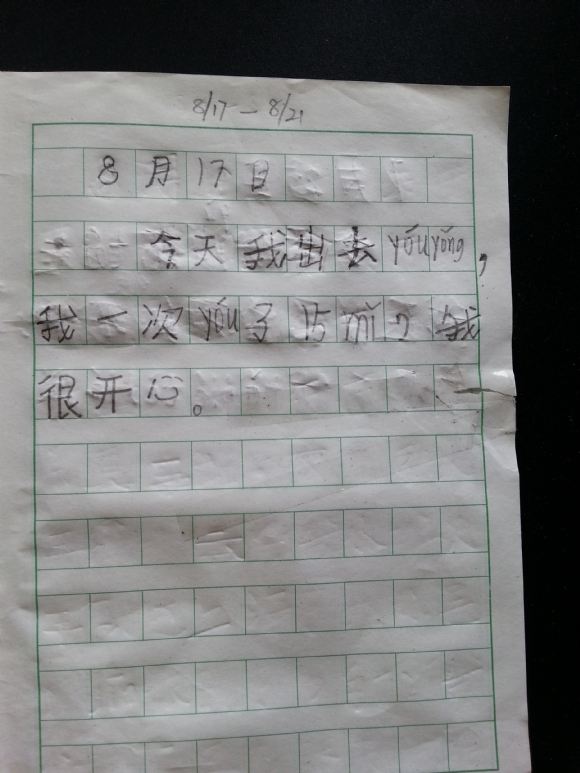 8/17 — 8/21
8月17日
今天我出去yóuyǒng,
我一次yóu了15mǐ,我
很开心。